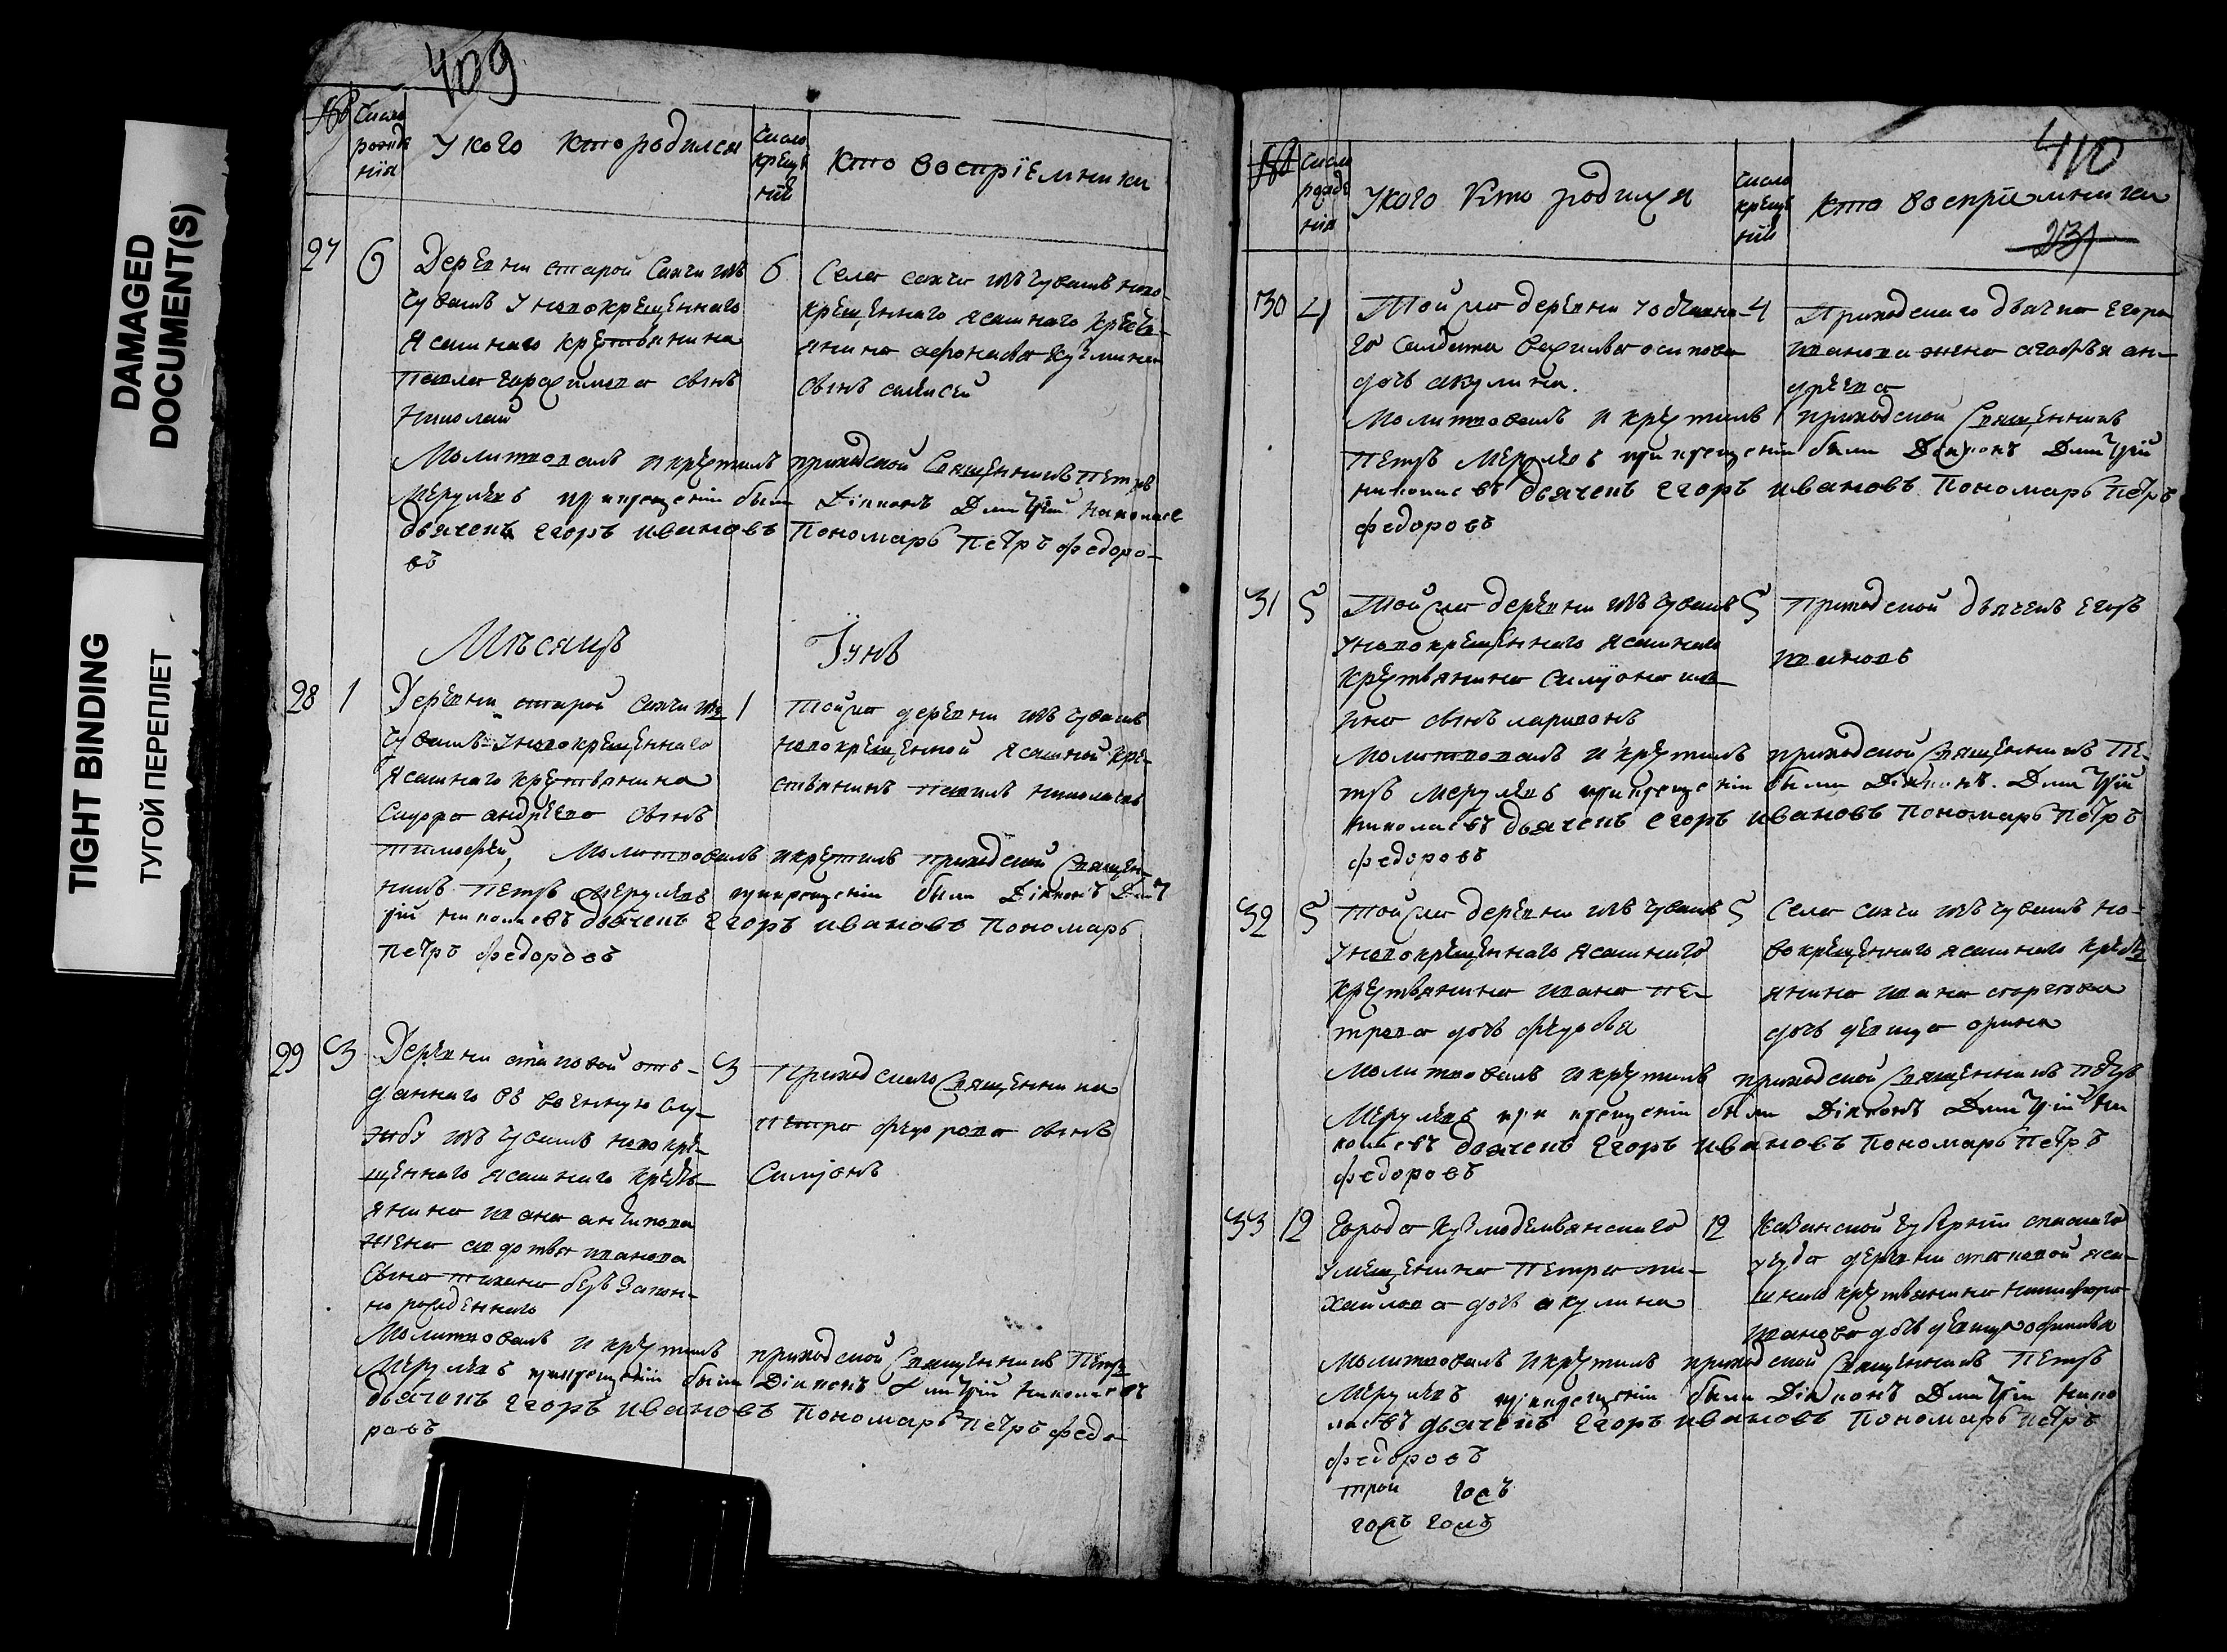 DAMAGED
DOCUMENT(S)
TIGHT BINDING
ТУГОЙ ПЕРЕПЛЕТ
409
№ Число рожде нїя
У кого кто родился
Число креще нїя
Кто воспрїемники
27 6 Деревни старой Сахчи изъ 6
чувашъ у новокрещеннаго
ясашнаго крестьянина
Павла Герасимова сынъ
Николай
Села сахчи изъ чувашъ ново-
крещеннаго ясашнаго кресть-
янина афонасья кузмина
сынъ алексей
Молитвовалъ и крестилъ приходской Священникъ Петръ
при крещенїи были Дїаконъ Димитрїй Николае
дьячекъ Егоръ Ивановъ Пономарь Петръ федоро-
въ
Мѣсяцъ Їунь
28 1 Деревни старой Сахчи изъ 1
чувашъ у новокрещеннаго
ясашнаго крестьянина
андреева сынъ
тимофей,
Той же деревни изъ чувашъ
новокрещенной ясашной кре-
стьянинъ павилъ николаевъ
Молитвовалъ и крестилъ приходской Священ-
никъ Петръ при крещенїи были Дїаконъ Димит
рїй николаевъ дьячекъ Егоръ Ивановъ Пономарь
Петръ федоровъ
29 3 Деревни отъ- 3
даннаго въ военную слу-
жбу изъ чувашъ новокре-
щеннаго ясашнаго кресть-
янина ивана антипова
жена иванова
сына безъ закон-
но рожденнаго
Приходскаго Священника
петра федорова сынъ
Симїонъ
Молитвовалъ и крестилъ приходской Священникъ Петръ
при крещенїи были Дїаконъ Димитрїй Николаевъ
дьячекъ Егоръ Ивановъ Пономарь Петръ федо
ровъ
410
№ Число рожде нїя
У кого кто родился
Число креще нїя
Кто воспрїемники
231
30 4 Той же деревни 4
го Салдата василья осипова
дочь акулина.
Приходскаго дьячка Егора
иванова жена агафья ан-
дреева
Молитвовалъ и крестилъ приходской Священникъ
Петръ при крещенїи были Дїаконъ Димитрїй
николаевъ дьячекъ Егоръ Ивановъ Пономарь Петръ
федоровъ
31 5 Той же деревни изъ чувашъ 5
у новокрещеннаго ясашнаго
крестьянина Симїона
сынъ ларивонъ
Приходской дьячекъ Егоръ
ивановъ
Молитвовалъ и крестилъ приходской Священникъ Пе-
тръ при крещенїи были Дїаконъ Димитрїй
николаевъ дьячекъ Егоръ Ивановъ Пономарь Петръ
федоровъ
32 5 Той же деревни изъ чувашъ 5
у новокрещеннаго ясашнаго
крестьянина ивана пе-
трова дочь федосья
Села сахчи изъ чувашъ но-
вокрещеннаго ясашнаго кресть
янина ивана
дочь девица
Молитвовалъ и крестилъ приходской Священникъ Петръ
при крещенїи были Дїаконъ Димитрїй Ни
колаевъ дьячекъ Егоръ Ивановъ Пономарь Петръ
федоровъ
33 12 Города Кузмодемьянскаго 12
у мещенина Петра ми-
хайлова дочь акулина
Казанской губернїи спаскаго
уезда деревни яса-
шнаго крестьянина никифора
иванова дочь девица
Молитвовалъ и крестилъ приходской Священникъ Петръ
при крещенїи были Дїаконъ Димитрїй Нико
лаевъ дьячекъ Егоръ Ивановъ Пономарь Петръ
федоровъ